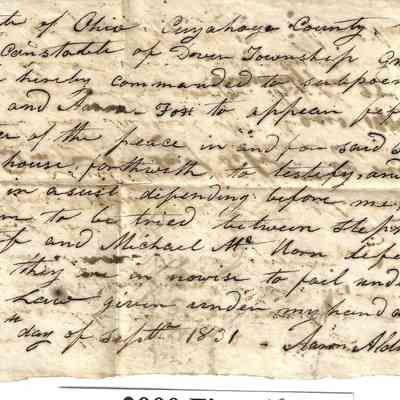 te of Ohio Cuyahoga County
Constable of Dover Township
hereby commanded to subpoen
and Aaron Fox to appear
of the peace in and for said
house forthwith to testify, and
in a suit depending before me
to be tried between
and Michael Mc
they are in nowise to fail und
Law given under my hand a
day of Septr 1831 - Aaron Ald